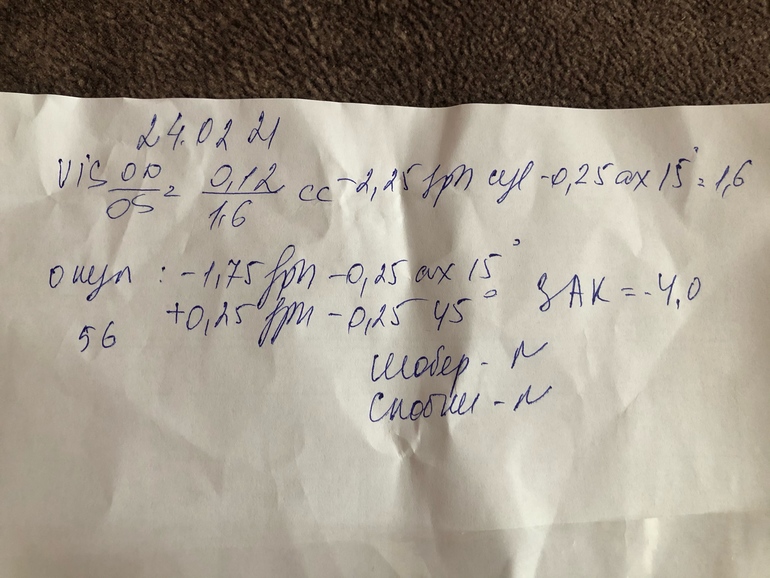 24.02 21
Vis OD/OS = 0,12/1,6 cc -2,25 sph cyl -0,25 ax 15° = 1,6
: -1,75 sph -0,25 ax 15°
+0,25 sph -0,25 45° ЗАК = -4,0
56
Шобер - N
- N